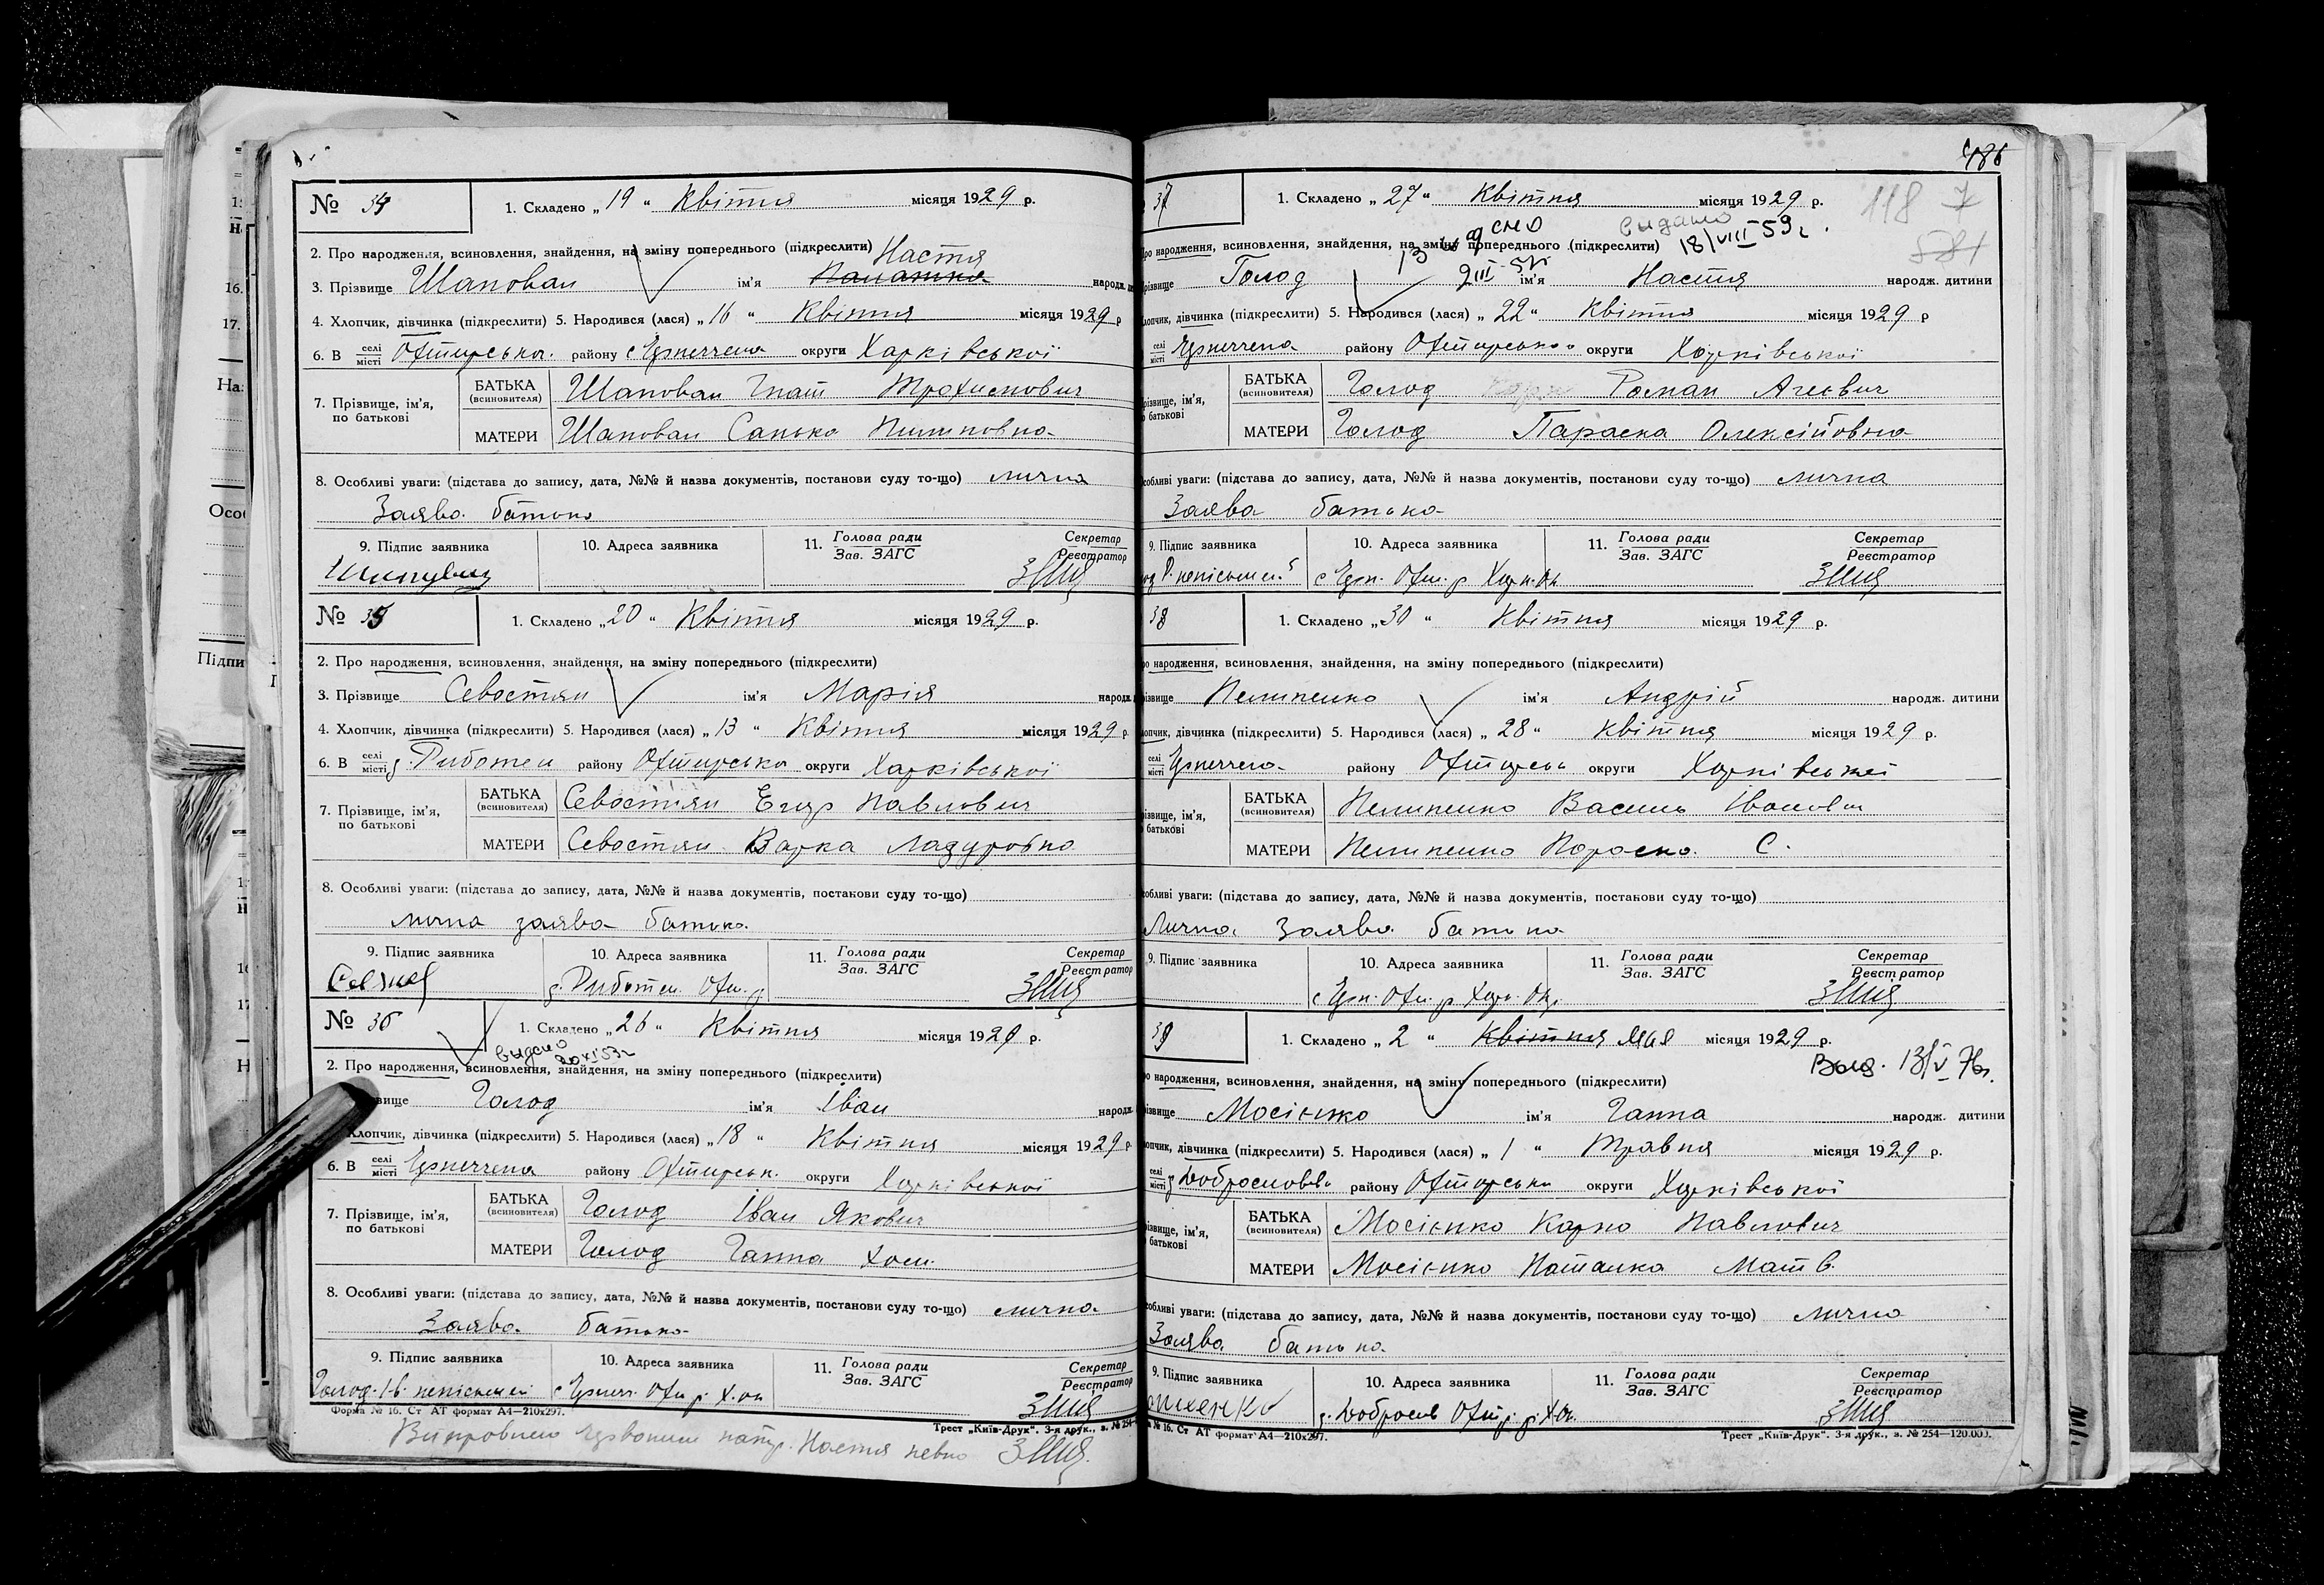 186
118 7
581
№ 34
1. Складено „ 19 “ Квітня місяця 1929 р.
2. Про народження, всиновлення, знайдення, на зміну попереднього (підкреслити)
Настя
3. Прізвище Шаповал ім'я народж.
4. Хлопчик, дівчинка (підкреслити) 5. Народився (лася) „ 16 “ Квітня місяця 1929 р
6. В селі місті Охтирська району округи Харківської
7. Прізвище, ім'я, по батькові
БАТЬКА (всиновителя) Шаповал Гнат Трохимович
МАТЕРИ Шаповал Санька Пилиповна
8. Особливі уваги: (підстава до запису, дата, №№ й назва документів, постанови суду то-що) лична
Заява батька
9. Підпис заявника
10. Адреса заявника
11. Голова ради Зав. ЗАГС
Секретар Реєстратор
№ 35
1. Складено „ 20 “ Квітня місяця 1929 р.
2. Про народження, всиновлення, знайдення, на зміну попереднього (підкреслити)
3. Прізвище Севостян ім'я Марія народж.
4. Хлопчик, дівчинка (підкреслити) 5. Народився (лася) „ 13 “ Квітня місяця 1929 р.
6. В селі місті району Охтирська округи Харківської
7. Прізвище, ім'я, по батькові
БАТЬКА (всиновителя) Севостян Егор Павлович
МАТЕРИ Севостян Варка
8. Особливі уваги: (підстава до запису, дата, №№ й назва документів, постанови суду то-що)
лична заява батька
9. Підпис заявника
10. Адреса заявника
11. Голова ради Зав. ЗАГС
Секретар Реєстратор
№ 36
1. Складено „ 26 “ Квітня місяця 1929 р.
видано 20 XI 53 г
2. Про народження, всиновлення, знайдення, на зміну попереднього (підкреслити)
вище Голод ім'я Іван народж.
Хлопчик, дівчинка (підкреслити) 5. Народився (лася) „ 18 “ Квітня місяця 1929 р.
6. В селі місті району Охтирськ. округи Харківської
7. Прізвище, ім'я, по батькові
БАТЬКА (всиновителя) Голод Іван Якович
МАТЕРИ Голод Ганна Хом.
8. Особливі уваги: (підстава до запису, дата, №№ й назва документів, постанови суду то-що) лична
Заява батька
9. Підпис заявника
10. Адреса заявника
11. Голова ради Зав. ЗАГС
Секретар Реєстратор
Голод І.в. неписьмен
Форма № 16. Ст АТ формат А4—210x297.
Трест „Київ-Друк“. 3-я друк., з. № 254
37
1. Складено „ 27 “ Квітня місяця 1929 р.
видано 18/VIII 59 г.
ро народження, всиновлення, знайдення, на зміну попереднього (підкреслити)
різвище Голод ім'я Настя народж. дитини
лопчик, дівчинка (підкреслити) 5. Народився (лася) „ 22 “ Квітня місяця 1929 р
селі місті району Охтирська округи Харківської
різвище, ім'я, о батькові
БАТЬКА (всиновителя) Голод Роман Агеевич
МАТЕРИ Голод Параска Олексійовна
собливі уваги: (підстава до запису, дата, №№ й назва документів, постанови суду то-що) лична
Заява батька
9. Підпис заявника
10. Адреса заявника
11. Голова ради Зав. ЗАГС
Секретар Реєстратор
38
1. Складено „ 30 “ Квітня місяця 1929 р.
ро народження, всиновлення, знайдення, на зміну попереднього (підкреслити)
ізвище Пелипенко ім'я Андрій народж. дитини
опчик, дівчинка (підкреслити) 5. Народився (лася) „ 28 “ Квітня місяця 1929 р.
селі місті району округи Харківської
ізвище, ім'я, о батькові
БАТЬКА (всиновителя) Пелипенко Василь Іванович
МАТЕРИ Пелипенко Параска С.
собливі уваги: (підстава до запису, дата, №№ й назва документів, постанови суду то-що)
Лична Заява батька
9. Підпис заявника
10. Адреса заявника
11. Голова ради Зав. ЗАГС
Секретар Реєстратор
39
1. Складено „ 2 “ Квітня Мая місяця 1929 р.
Выд. 13/V 76г.
о народження, всиновлення, знайдення, на зміну попереднього (підкреслити)
ізвище Мосієнко ім'я Ганна народж. дитини
опчик, дівчинка (підкреслити) 5. Народився (лася) „ 1 “ Травня місяця 1929 р.
селі місті району Охтирська округи Харківської
ізвище, ім'я, батькові
БАТЬКА (всиновителя) Мосієнко Карпо Павлович
МАТЕРИ Мосієнко Наталка Матв.
обливі уваги: (підстава до запису, дата, №№ й назва документів, постанови суду то-що) лична
Заява батька
9. Підпис заявника
10. Адреса заявника
11. Голова ради Зав. ЗАГС
Секретар Реєстратор
№ 16. Ст АТ формат А4—210x297.
Трест „Київ-Друк“. 3-я друк., з. № 254—120.000.